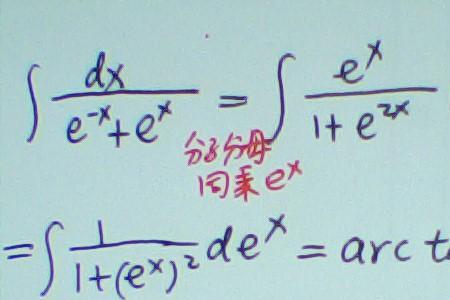 ∫ dx/(e^-x + e^x) = ∫ e^x/(1+e^2x)
分子分母
同乘e^x
= ∫ 1/(1+(e^x)^2) de^x = arc t